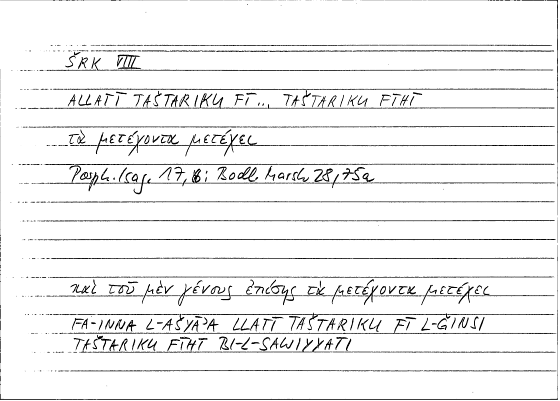 ŠRK VIII
ALLATĪ TAŠTARIKU FĪ... TAŠTARIKU FĪHĪ
τὰ μετέχοντα μετέχει
Porph. Isag. 17, 8: Bodl. Marsh 28, 75a
καὶ τοῦ μὲν γένους ἐπίσης τὰ μετέχοντα μετέχει
FA-INNA L-AŠYĀʾA LLATĪ TAŠTARIKU FĪ L-ǦINSI
TAŠTARIKU FĪHĪ BI-L-SAWIYYATI